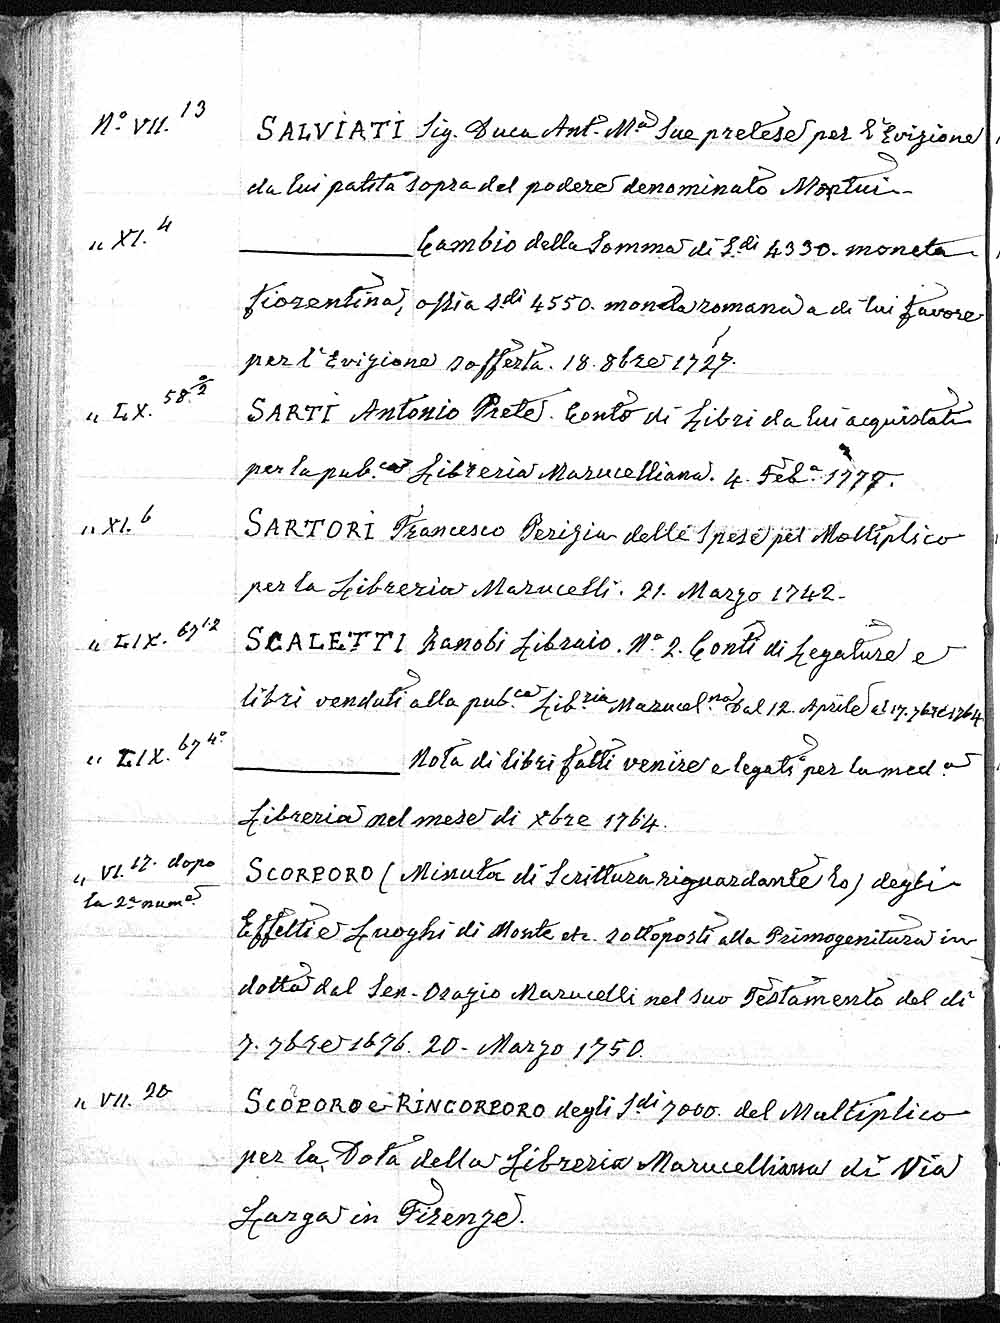 N.° VII. 13 SALVIATI Sig. Duca Ant.° M.a Sue pretese per l'Evizione
da lui patita sopra del podere denominato Montui
„ XI. 4 Cambio della Somma di S.di 4330. moneta
fiorentina, ossia S.di 4550. moneta romana a di lui favore
per l'Evizione sofferta. 18. 8bre 1727.
„ LX. 58.2° SARTI Antonio Prete. Conto di Libri da lui acquistati
per la pub.ca Libreria Marucelliana. 4. Feb.°
„ XI. 6 SARTORI Francesco Perizia delle Spese pel Moltiplico
per la Libreria Marucelli. 21. Marzo 1742.
„ LIX. 67 1.2 SCALETTI Zanobi Libraio. N.° 2. Conti di Legature e
libri venduti alla pub.ca Lib.ria Marucel.na dal 12. Aprile al 17. 7bre 1764
„ LIX. 67 4° Nota di libri fatti venire e legati per la med.a
Libreria nel mese di Xbre 1764.
„ VI. 17. dopo SCORPORO (Minuta di Scrittura riguardante lo) degli
la 2a num.e Effetti e Luoghi di Monte etc. sottoposti alla Primogenitura in
dotta dal Sen. Orazio Marucelli nel suo Testamento del dì
7. 7bre 1676. 20. Marzo 1750.
„ VII. 20 SCOPORO e RINCORPORO degli S.di 7000. del Multiplico
per la Dota della Libreria Marucelliana di Via
Larga in Firenze.